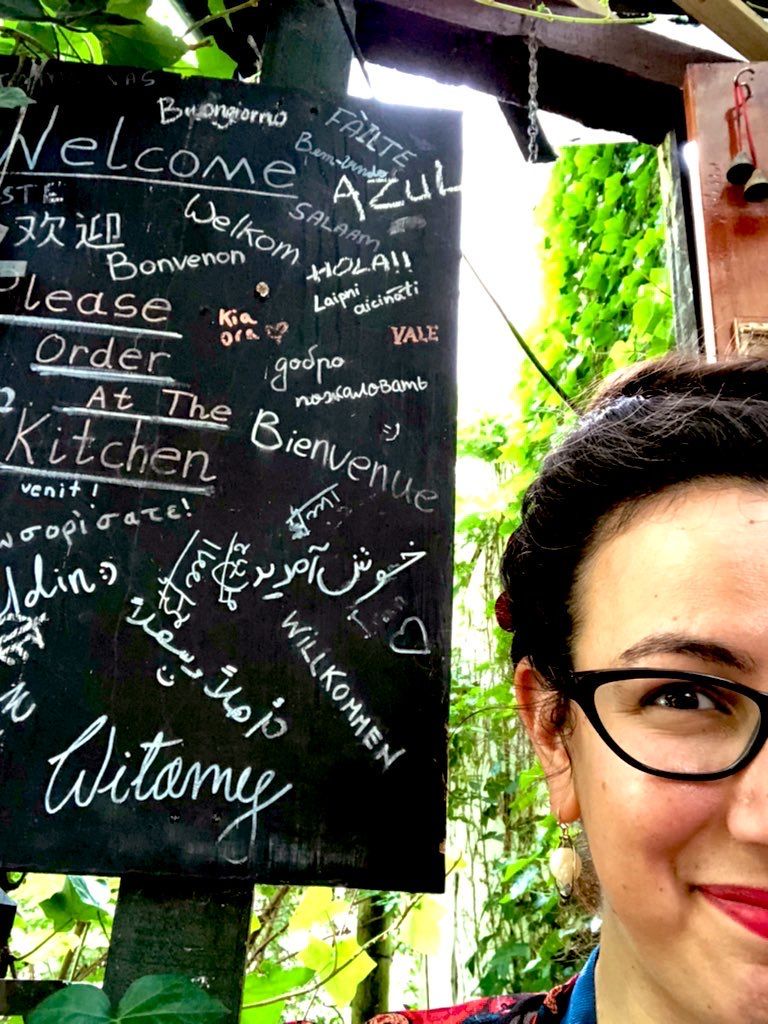 Buongiorno
FÀILTE
Welcome
Bem-vindo
AZUL
STE
Welkom
SALAAM
欢迎
Bonvenon
HOLA!!
Laipni
aicināti
Please
Kia
Ora
VALE
Order
добро
пожаловать
At The
Kitchen
Bienvenue
:)
venit!
ωσορίσατε!
خوش آمدید
ldin :)
WILLKOMMEN
Witamy